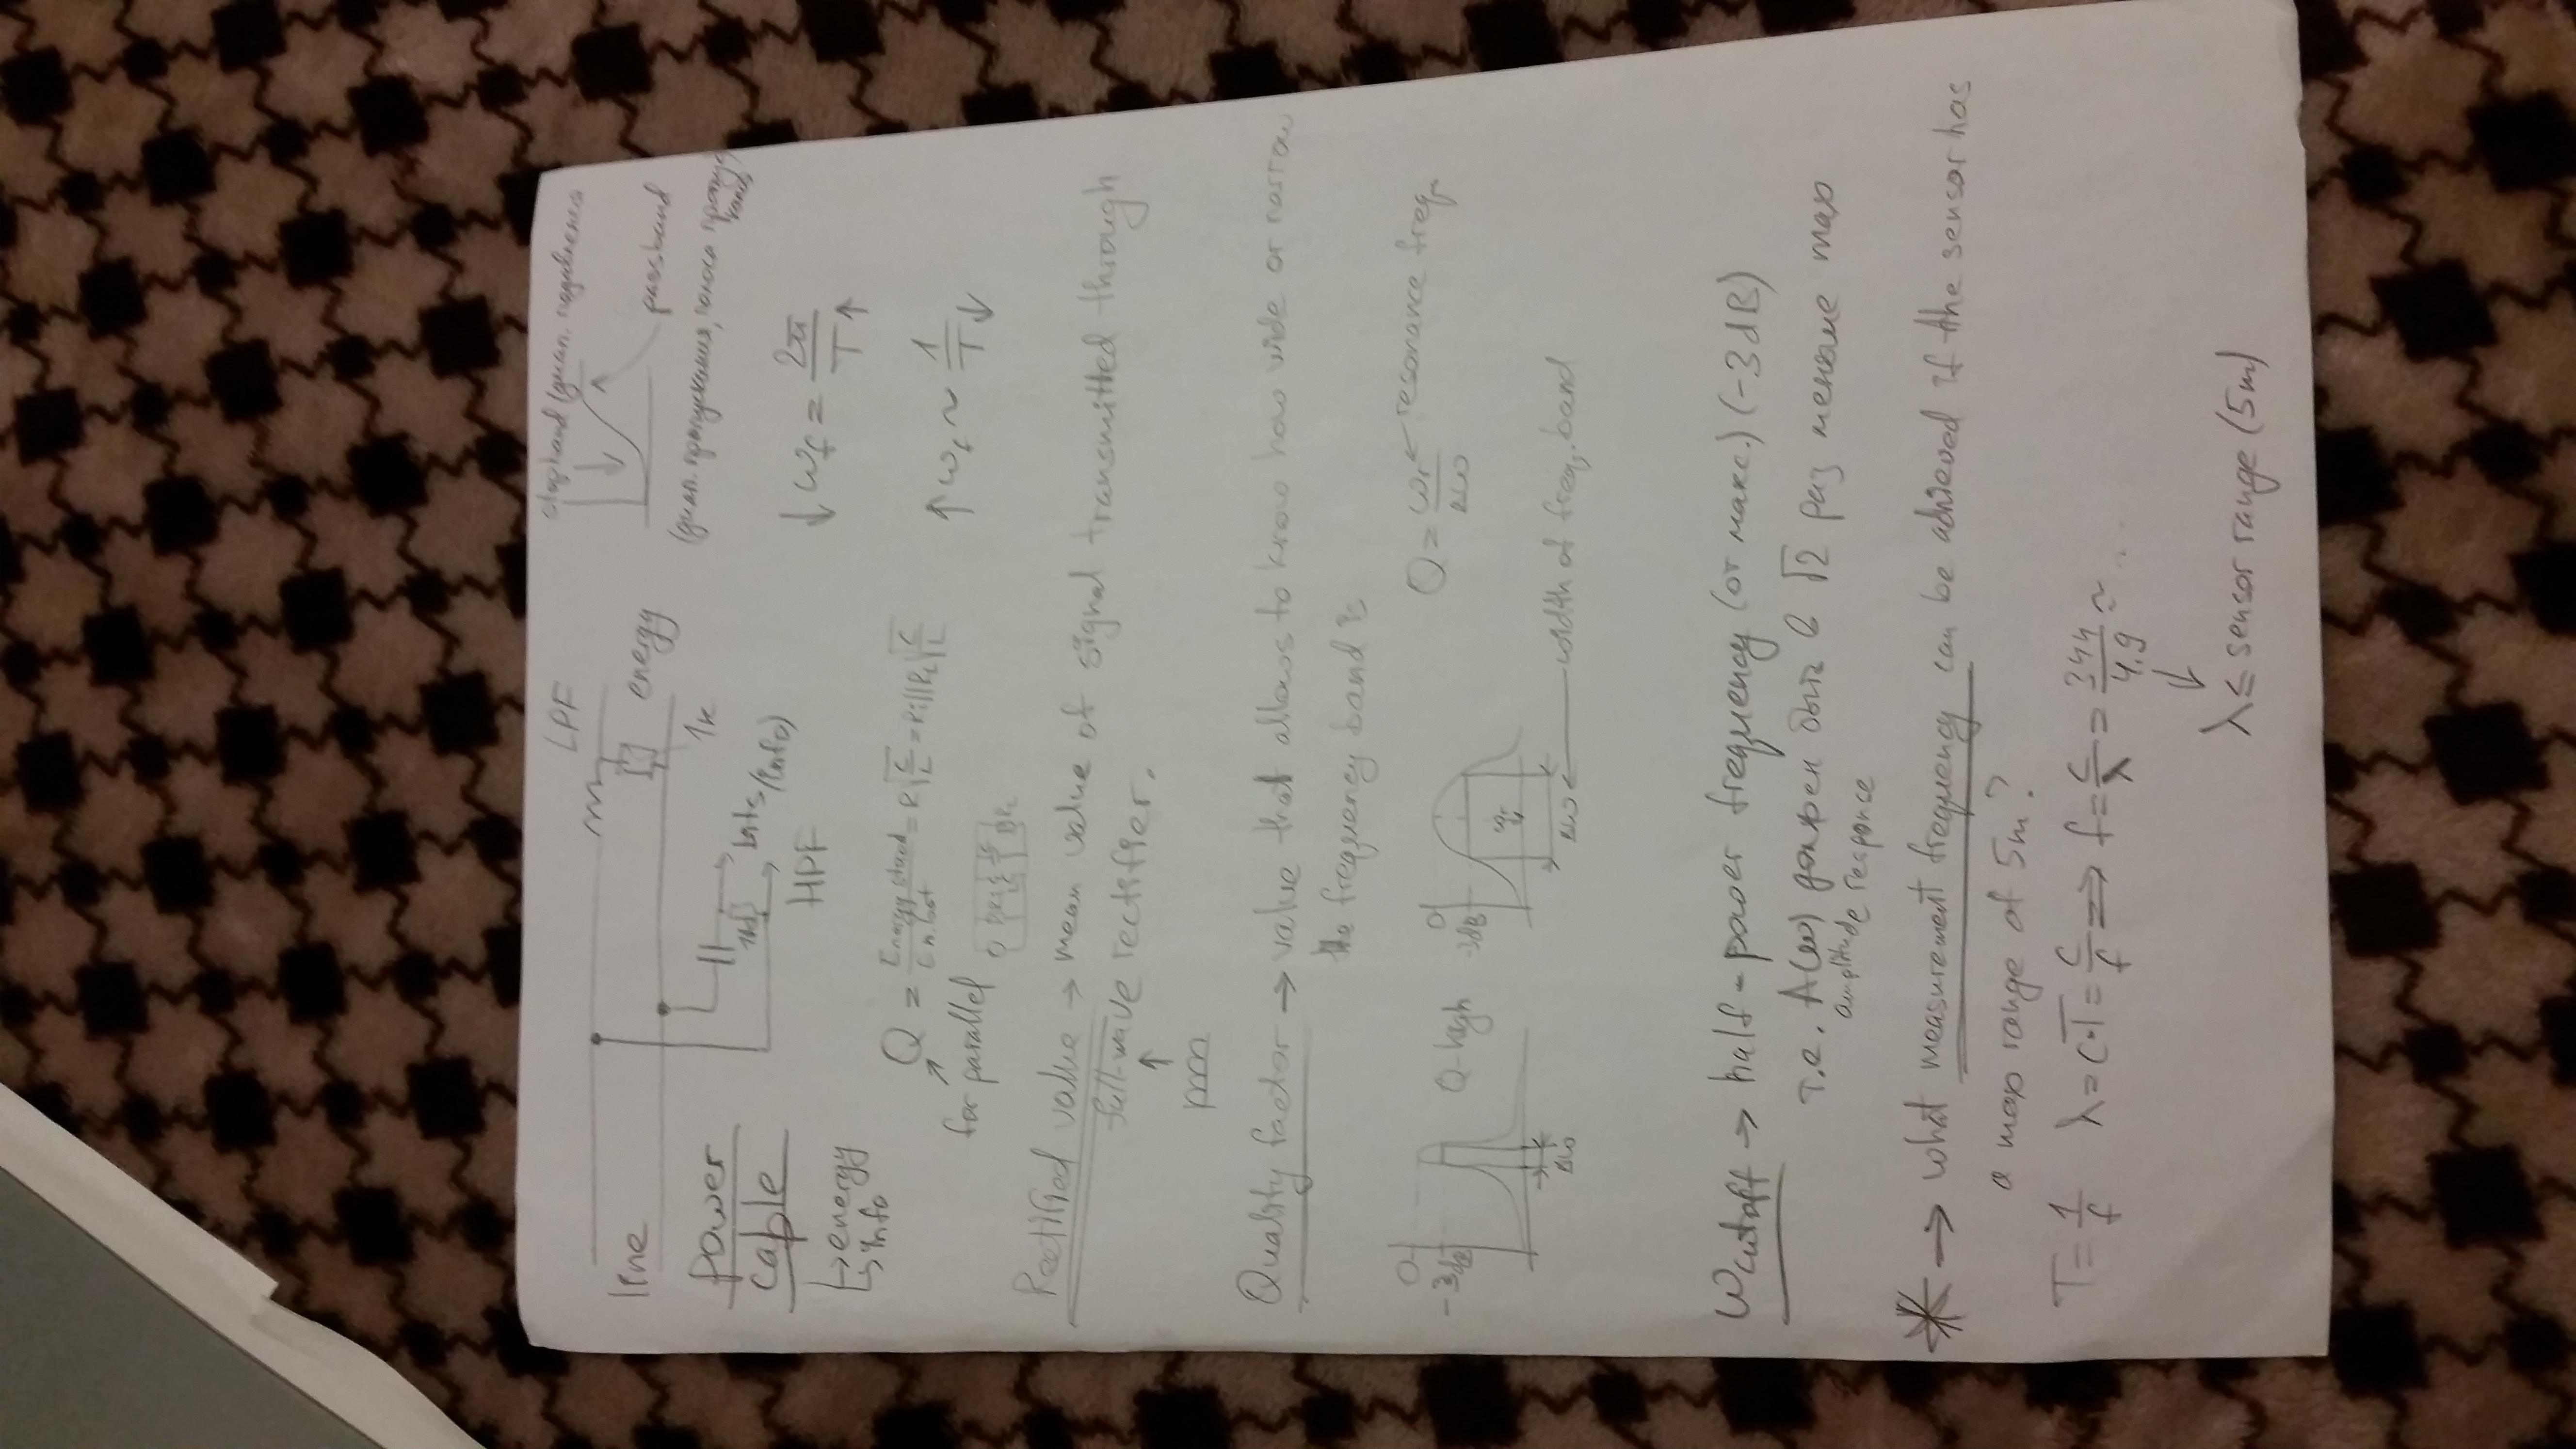 LPF
stopband (диап. подавления
line
energy
passband
1k
(диап. пропускания, полоса пропус
кания)
power
cable
bits (info)
HPF
↓ωf = 2π/T↑
→energy
→info
Q = Energy stored/En. lost = R√C/L = Ri||RL√C/L
for parallel
↑ωf ~ 1/T↓
Rectified value → mean value of signal transmitted through
full-wave rectifier.
Quality factor → value that allows to know how wide or narrow
the frequency band is
0
-3dB
Q-high
Δω
0
-3dB
ωr
Δω ← width of freq. band
Q = ωr/Δω ← resonance freq.
ωcutoff → half-power frequency (от макс.) (-3dB)
т.е. A(ω) должен быть в √2 раз меньше max
amplitude response
* → what measurement frequency can be achieved if the sensor has
a max range of 5m?
T = 1/f λ = c·T = c/f ⇒ f = c/λ = 344/4.9 ≈ ...
λ ≤ sensor range (5m)